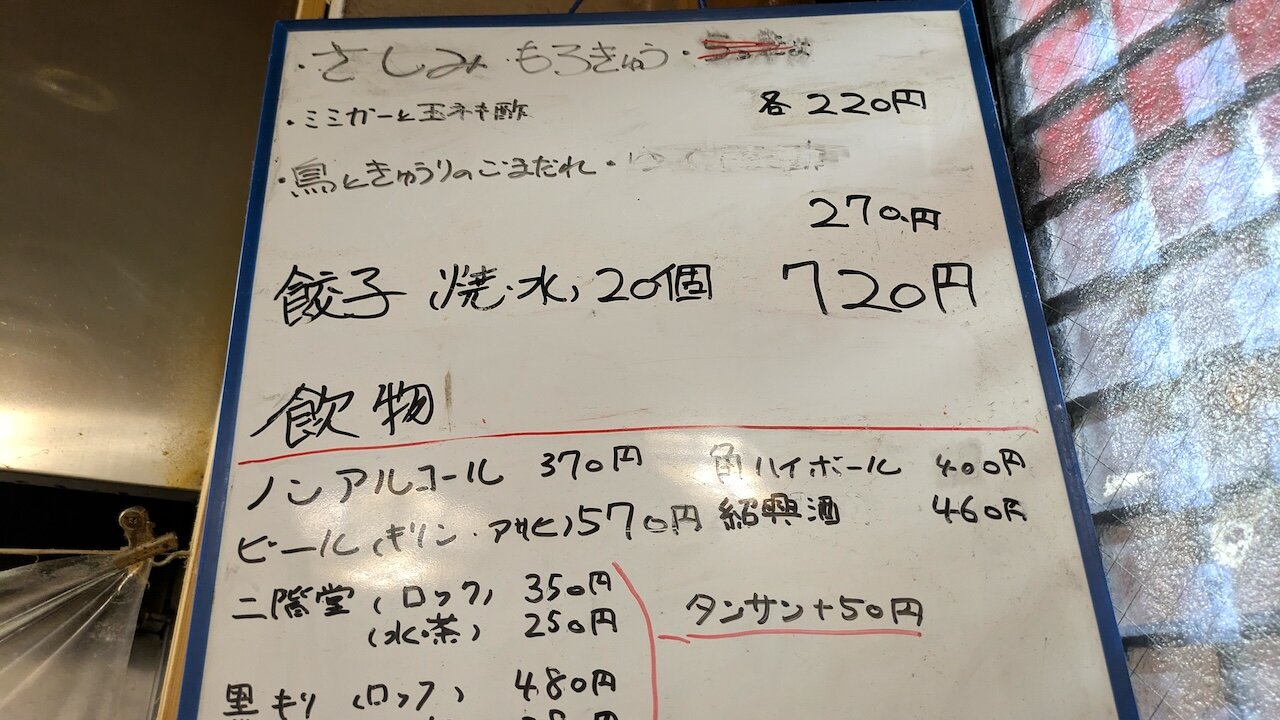 ・さしみ ・もろきゅう・
・ミミガーと玉ネギ酢 各220円
・鳥ときゅうりのごまだれ・
270円
餃子(焼・水)20個 720円
飲物
ノンアルコール 370円 角ハイボール 400円
ビール(キリン・アサヒ)570円 紹興酒 460円
二階堂(ロック) 350円
(水・茶) 250円
タンサン+50円
黒キリ(ロック) 480円